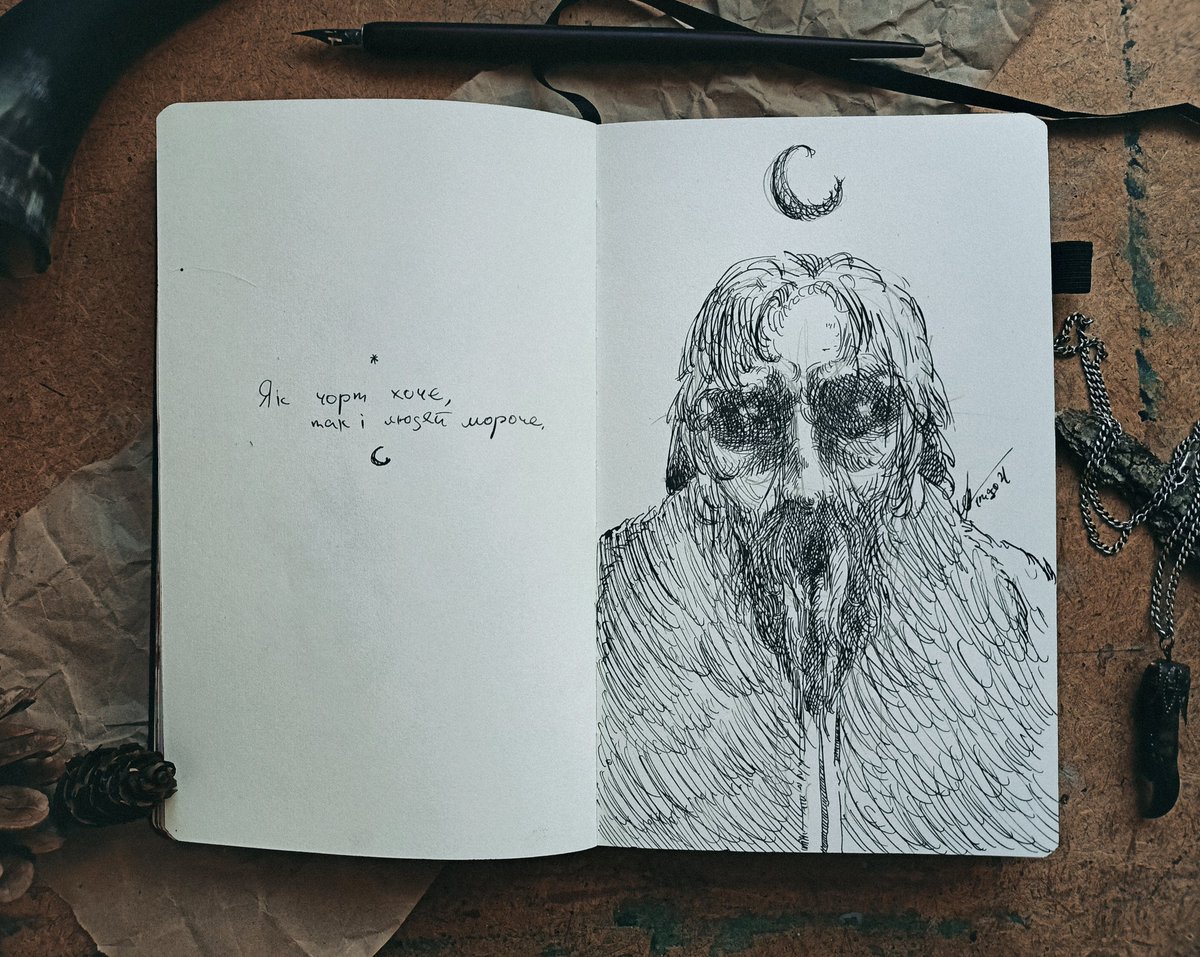 *
Як чорт хоче,
так і людей мороче.